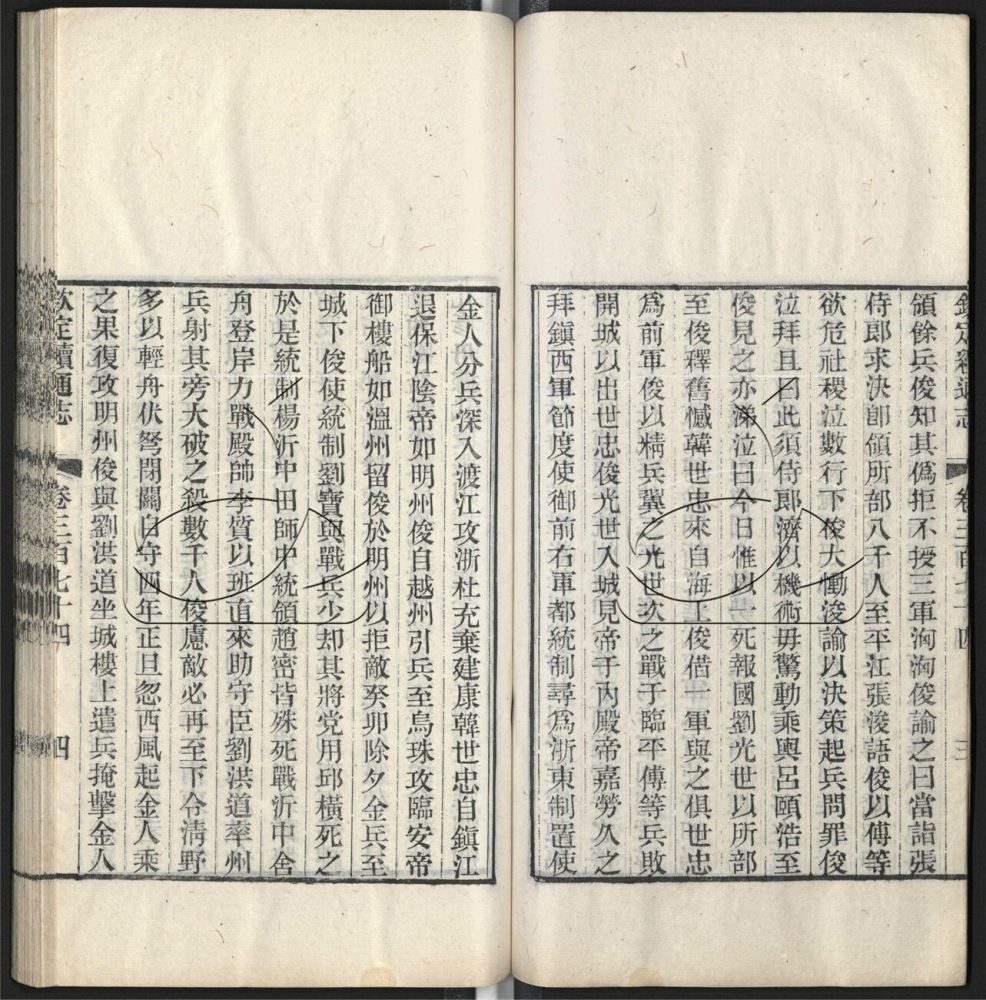 欽定續通志 卷三百七十四 三
領餘兵俊知其僞拒不授三軍洶洶俊諭之曰當詣張
侍郎求決卽領所部八千人至平江張浚語俊以傅等
欲危社稷泣數行下俊大慟浚諭以決策起兵問罪俊
泣拜且曰此須侍郎濟以機術毋驚動乘輿呂頤浩至
俊見之亦涕泣曰今日惟以一死報國劉光世以所部
至俊釋舊憾韓世忠來自海上俊借一軍與之俱世忠
爲前軍俊以精兵翼之光世次之戰于臨平傅等兵敗
開城以出世忠俊光世入城見帝于內殿帝嘉勞久之
拜鎮西軍節度使御前右軍都統制尋爲浙東制置使
金人分兵深入渡江攻浙杜充棄建康韓世忠自鎮江
退保江陰帝如明州俊自越州引兵至烏珠攻臨安帝
御樓船如溫州留俊於明州以拒敵癸卯除夕金兵至
城下俊使統制劉寶與戰兵少却其將党用邱橫死之
於是統制楊沂中田師中統領趙密皆殊死戰沂中舍
舟登岸力戰殿師李質以班直來助守臣劉洪道率州
兵射其旁大破之殺數千人俊慮敵必再至下令淸野
多以輕舟伏弩閉關自守四年正旦忽西風起金人乘
之果復攻明州俊與劉洪道坐城樓上遣兵掩擊金人
欽定續通志 卷三百七十四 四